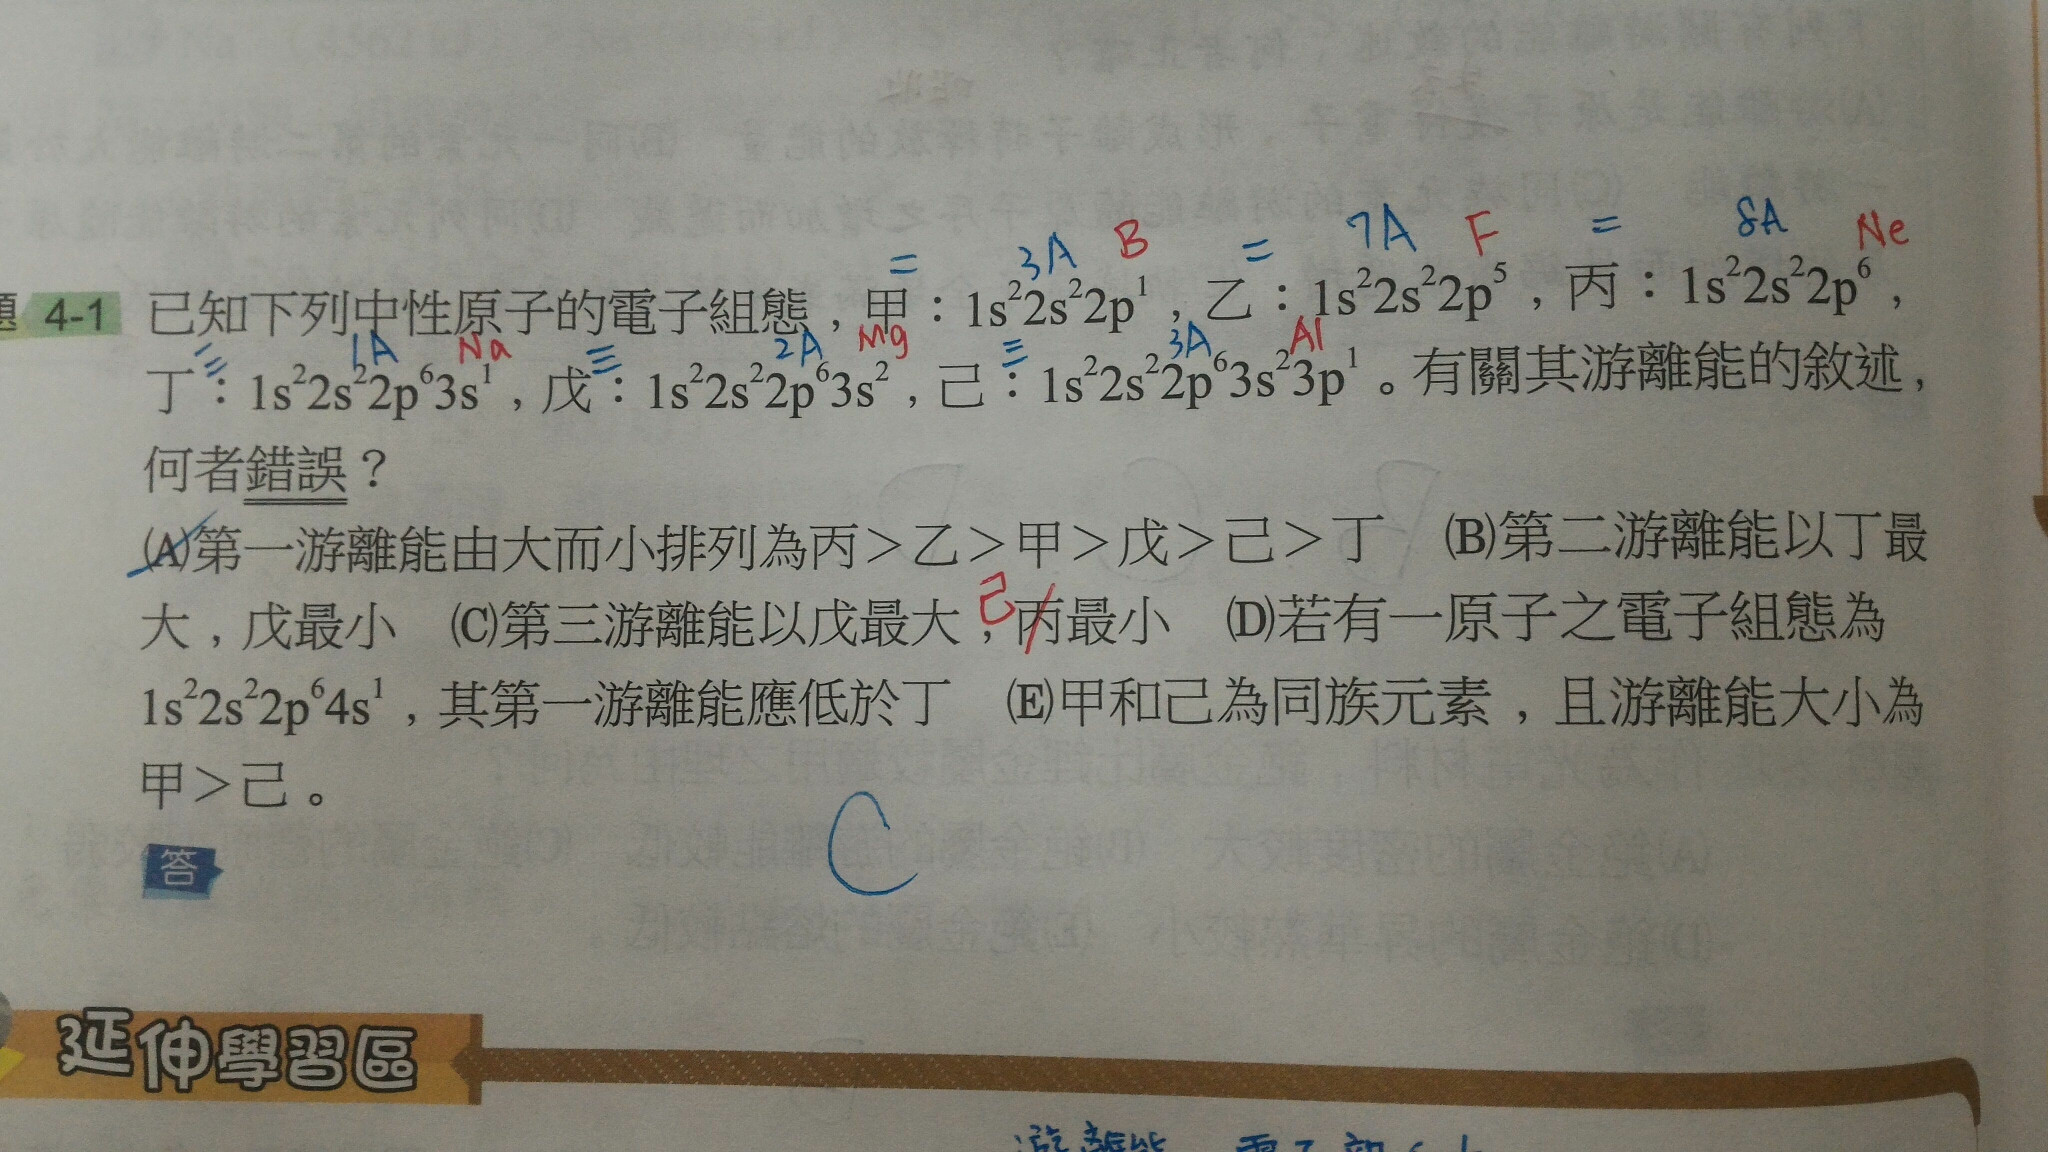 = 3A B = 7A F = 8A Ne
題 4-1 已知下列中性原子的電子組態，甲：1s²2s²2p¹，乙：1s²2s²2p⁵，丙：1s²2s²2p⁶，
三 1A Na 三 2A Mg 三 3A Al
丁：1s²2s²2p⁶3s¹，戊：1s²2s²2p⁶3s²，己：1s²2s²2p⁶3s²3p¹。有關其游離能的敘述，
何者錯誤？
(A)第一游離能由大而小排列為丙＞乙＞甲＞戊＞己＞丁 (B)第二游離能以丁最
己
大，戊最小 (C)第三游離能以戊最大，丙最小 (D)若有一原子之電子組態為
1s²2s²2p⁶4s¹，其第一游離能應低於丁 (E)甲和己為同族元素，且游離能大小為
甲＞己。
C
答
延伸學習區